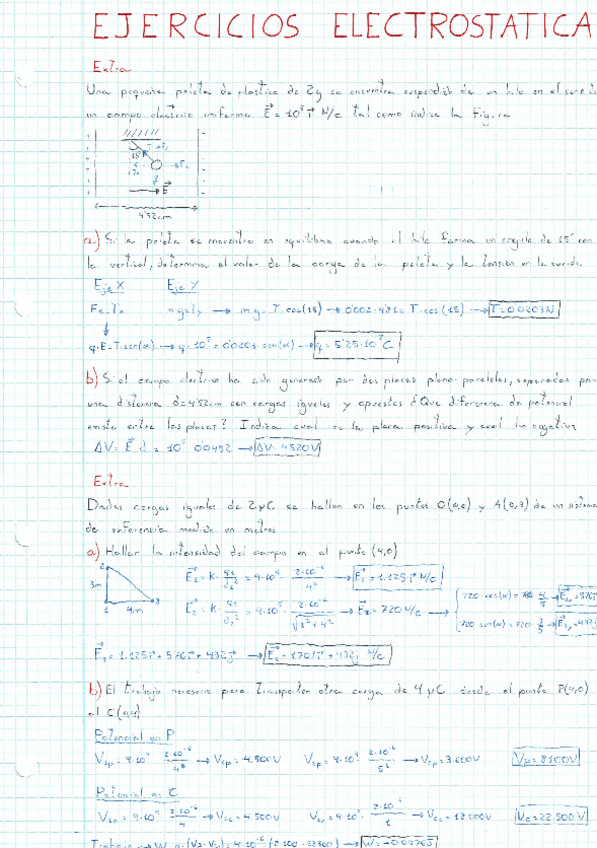 EJERCICIOS ELECTROSTATICA
Extra
Una pequeña pelota de plastico de 2g se encuentra suspendida de un hilo en el seno de
un campo electrico uniforme E⃗ = 10⁵ i⃗ N/C tal como indica la Figura
15°
E⃗
4'52cm
a) Si la pelota se encuentra en equilibrio cuando el hilo forma un angulo de 15° con
la vertical, determina el valor de la carga de la pelota y la tension en la cuerda
Eje X Eje Y
→ mg = T·cos(15) → 0'002·9'81 = T·cos(15) → T=0'0203N
q·E=T·sen(α) → → q = 5'25·10⁻⁸C
b) Si el campo electrico ha sido generado por dos placas plano-paralelas, separadas por
una distancia d=4'52cm con cargas iguales y opuestas ¿Que diferencia de potencial
existe entre las placas? Indica cual es la placa positiva y cual la negativa
ΔV= E·d = 10⁵· → ΔV= 4520V
Extra
Dadas cargas iguales de 2μC se hallan en los puntos O(0,0) y A(0,3) de un sistema
de referencia medido en metros
a) Hallar la intensidad del campo en el punto (4,0)
3m
4m
E⃗₁ = K· = 9·10⁹· 2·10⁻⁶ / 4² → E⃗₁ = 1.125 i⃗ N/C
E⃗₂ = K· = 9·10⁹· → E₂= 720 N/C →
720·cos(α)=720·4/5 →
720·sen(α)=720·3/5 →
E⃗ = 1.125i⃗ + 576i⃗ + 432j⃗ → = 1701i⃗ + 432j⃗ N/C
b) El trabajo necesario para transportar otra carga de 4μC desde el punto P(4,0)
al
Potencial en P
= 9·10⁹· 2·10⁻⁶ / 4 → = 4.500V = 9·10⁹· 2·10⁻⁶ / 5 → = 3.600V Vp= 8100V
Potencial en C
= 9·10⁹· 2·10⁻⁶ / 4 → = 4.500V = 9·10⁹· 2·10⁻⁶ / 1 → = 18.000V Vc= 22.500V
Trabajo →